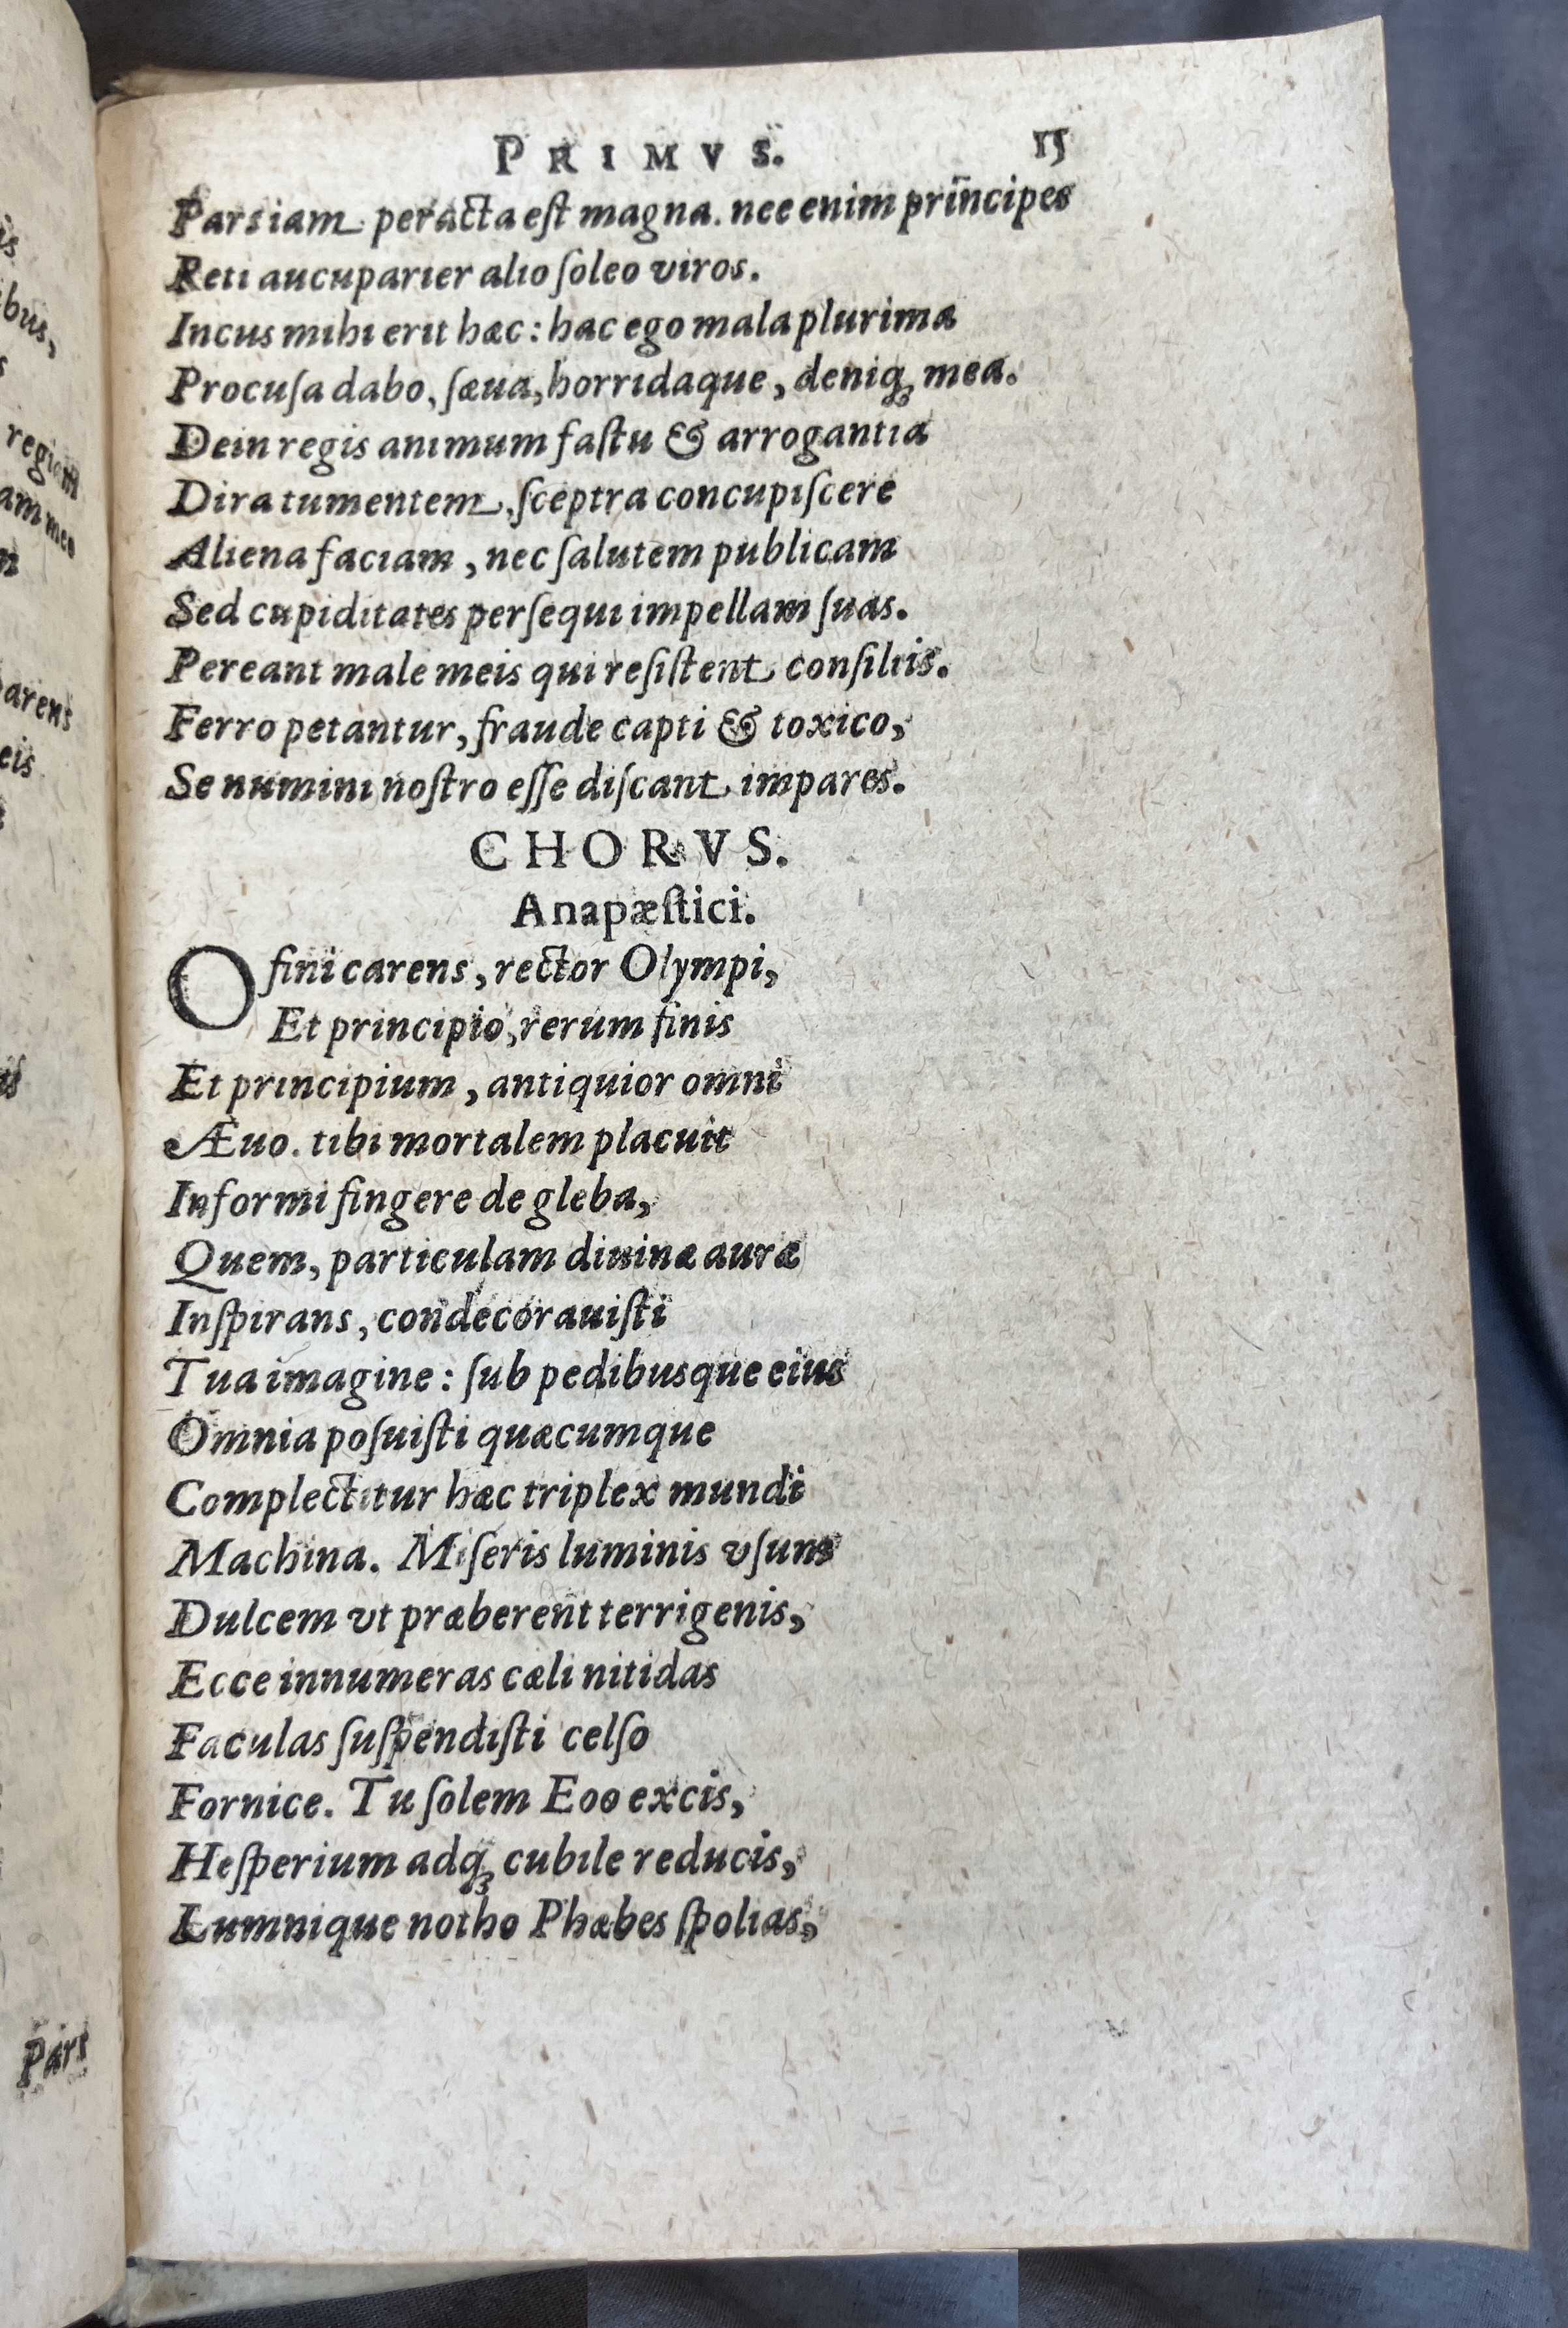 PRIMVS. 15
Pars iam peracta est magna. nec enim principes
Reti aucuparier alio soleo viros.
Incus mihi erit hæc: hac ego mala plurima
Procusa dabo, sæua, horridaque, deniq; mea.
Dein regis animum fastu & arrogantia
Dira tumentem, sceptra concupiscere
Aliena faciam, nec salutem publicam
Sed cupiditates persequi impellam suas.
Pereant male meis qui resistent consiliis.
Ferro petantur, fraude capti & toxico,
Se numini nostro esse discant impares.
CHORVS.
Anapæstici.
O fini carens, rector Olympi,
Et principio, rerum finis
Et principium, antiquior omni
Æuo. tibi mortalem placuit
Informi fingere de gleba,
Quem, particulam diuinæ auræ
Inspirans, condecorauisti
Tua imagine: sub pedibusque eius
Omnia posuisti quæcumque
Complectitur hæc triplex mundi
Machina. Miseris luminis vsum
Dulcem vt præberent terrigenis,
Ecce innumeras cæli nitidas
Faculas suspendisti celso
Fornice. Tu solem Eoo excis,
Hesperium adq; cubile reducis,
Lumnique notho Phæbes spolias,
is
bus,
regiam
am meo
arens
eis
Pars